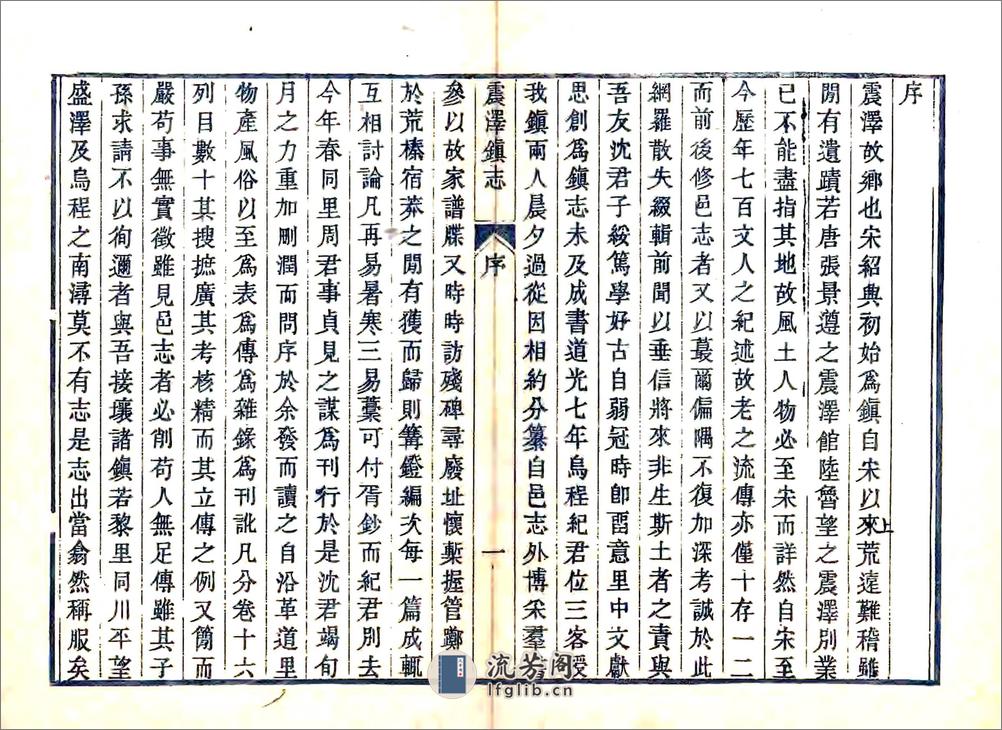 序
震澤故鄉也宋紹興初始爲鎭自宋以來荒遠難稽雖
上
閒有遺蹟若唐張景遵之震澤館陸魯望之震澤別業
已不能盡指其地故風土人物必至宋而詳然自宋至
今歷年七百文人之紀述故老之流傳亦僅十存一二
而前後修邑志者又以蕞爾偏隅不復加深考誠於此
網羅散失綴輯前聞以垂信將來非生斯土者之責與
吾友沈君子綏篤學好古自弱冠時卽畱意里中文獻
思創爲鎭志未及成書道光七年烏程紀君位三客授
我鎭兩人晨夕過從因相約分纂自邑志外博采羣書
震澤鎭志
序
一
參以故家譜牒又時時訪殘碑尋廢址懷槧握管躑
於荒榛宿莽之閒有獲而歸則篝鐙編次每一篇成輒
互相討論凡再易暑寒三易藁可付胥鈔而紀君別去
今年春同里周君事貞見之謀爲刊行於是沈君竭旬
月之力重加刪潤而問序於余發而讀之自沿革道里
物產風俗以至爲表爲傳爲雜錄爲刊訛凡分卷十六
列目數十其搜摭廣其考核精而其立傳之例又簡而
嚴苟事無實徵雖見邑志者必削苟人無足傳雖其子
孫求請不以徇邇者與吾接壤諸鎭若黎里同川平望
盛澤及烏程之南潯莫不有志是志出當翕然稱服矣
流芳阁
lfglib.cn